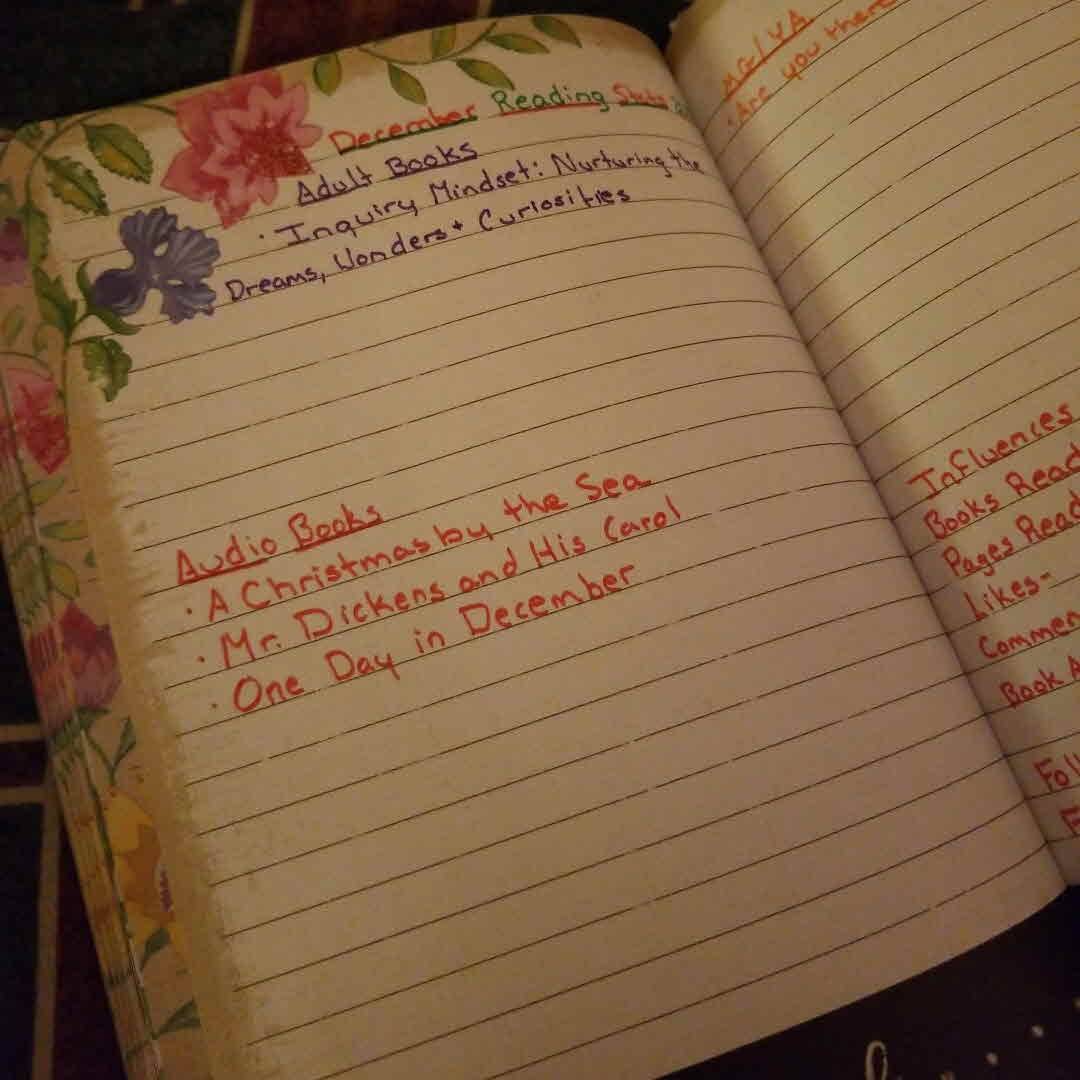 December Reading Stats
Adult Books
· Inquiry Mindset: Nurturing the
Dreams, Wonders + Curiosities
Audio Books
· A Christmas by the Sea
· Mr. Dickens and His Carol
· One Day in December
MG/YA
· Are you there
Influences
Books Read
Pages Read
Likes-
Book